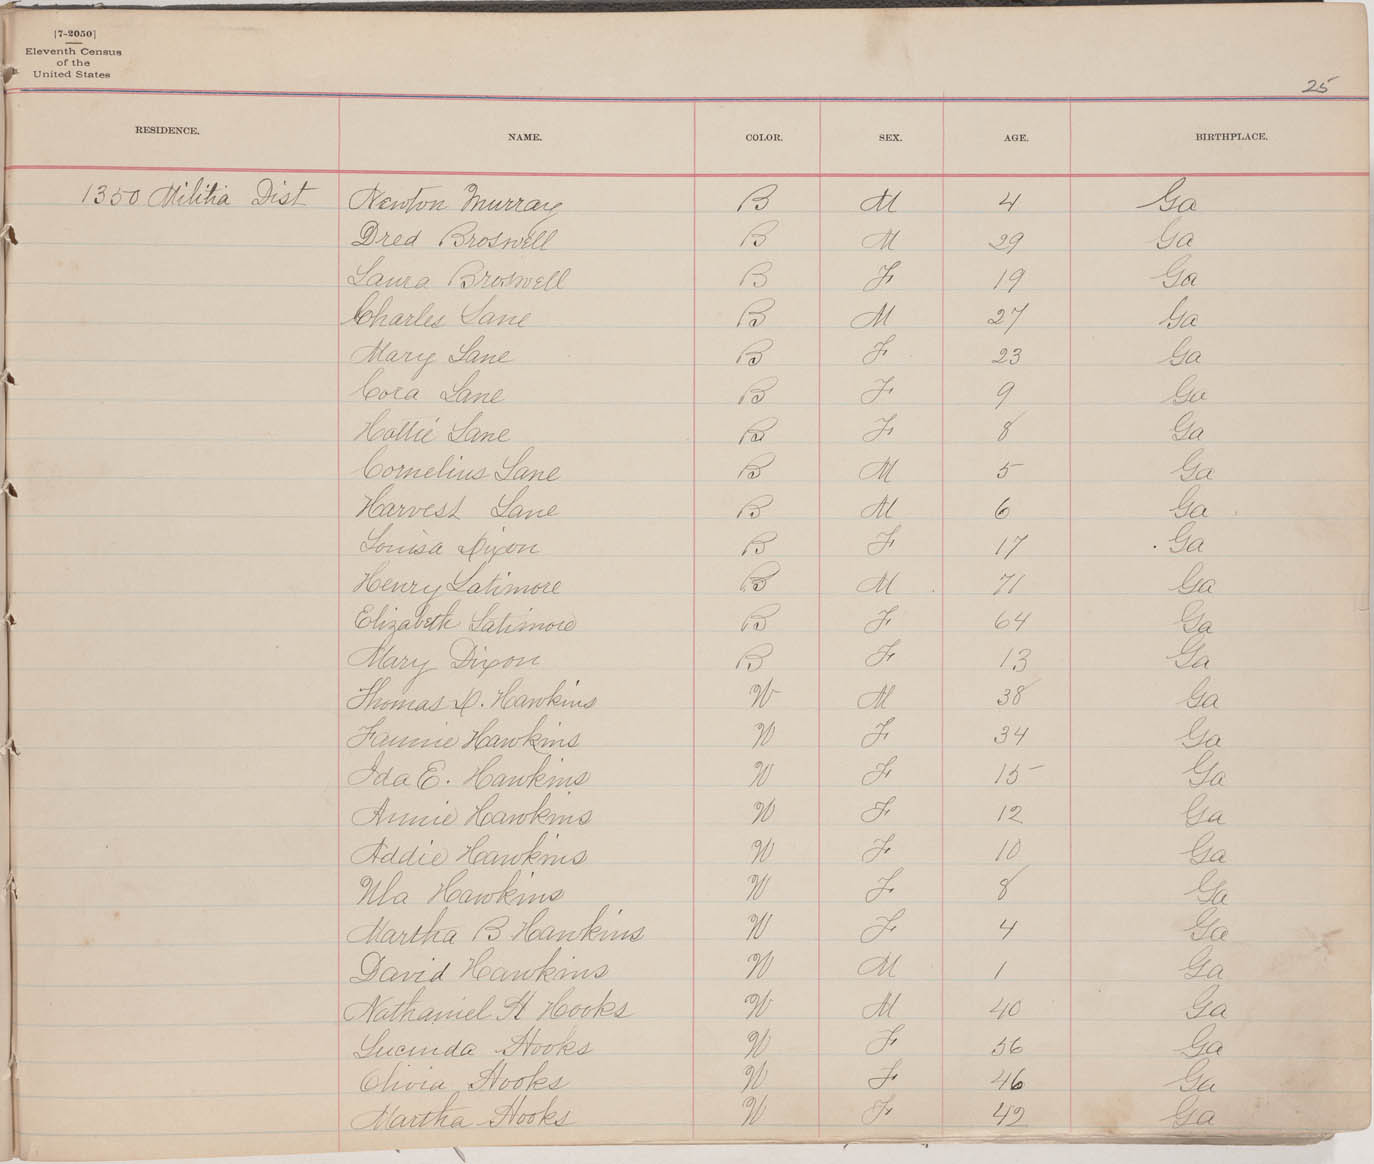 [7-2050]
Eleventh Census
of the
United States
25
RESIDENCE. NAME. COLOR. SEX. AGE. BIRTHPLACE.
1350 Militia Dist Newton Murray B M 4 Ga
Dred Broswell B M 29 Ga
Laura Broswell B F 19 Ga
Charles Lane B M 27 Ga
Mary Lane B F 23 Ga
Cora Lane B F 9 Ga
Hattie Lane B F 8 Ga
Cornelius Lane B M 5 Ga
Harvest Lane B M 6 Ga
Louisa Dixon B F 17 Ga
Henry Latimore B M 71 Ga
Elizabeth Latimore B F 64 Ga
Mary Dixon B F 13 Ga
Thomas D. Hawkins W M 38 Ga
Fannie Hawkins W F 34 Ga
Ida E. Hawkins W F 15 Ga
Annie Hawkins W F 12 Ga
Addie Hawkins W F 10 Ga
Ula Hawkins W F 8 Ga
Martha B Hawkins W F 4 Ga
David Hawkins W M 1 Ga
Nathaniel H Hooks W M 40 Ga
Lucinda Hooks W F 56 Ga
Olivia Hooks W F 46 Ga
Martha Hooks W F 42 Ga